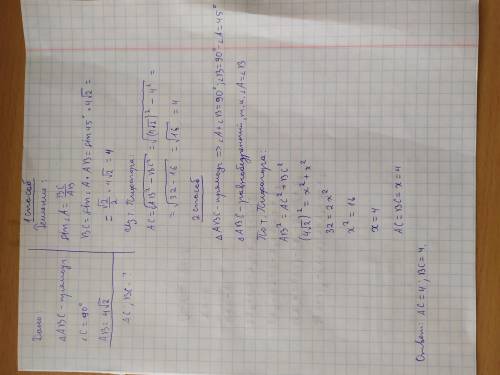 Дано
△ABC - прямоуг
∠C = 90°
AB = 4√2
AC, BC - ?
1 способ
Решение:
sin∠A = BC/AB
BC = sin∠A • AB = sin45° • 4√2 =
= √2/2 • 4√2 = 4
из т. Пифагора:
AC = √(AB² - BC²) = √((4√2)² - 4²) =
= √(32 - 16) = √16 = 4
2 способ
△ABC - прямоуг ⇒ ∠A + ∠B = 90°; ∠B = 90° - ∠A = 45°
△ABC - равнобедренный, т.к. ∠A = ∠B
По т. Пифагора:
AB² = AC² + BC²
(4√2)² = x² + x²
32 = 2x²
x² = 16
x = 4
AC = BC = x = 4
Ответ: AC = 4; BC = 4.